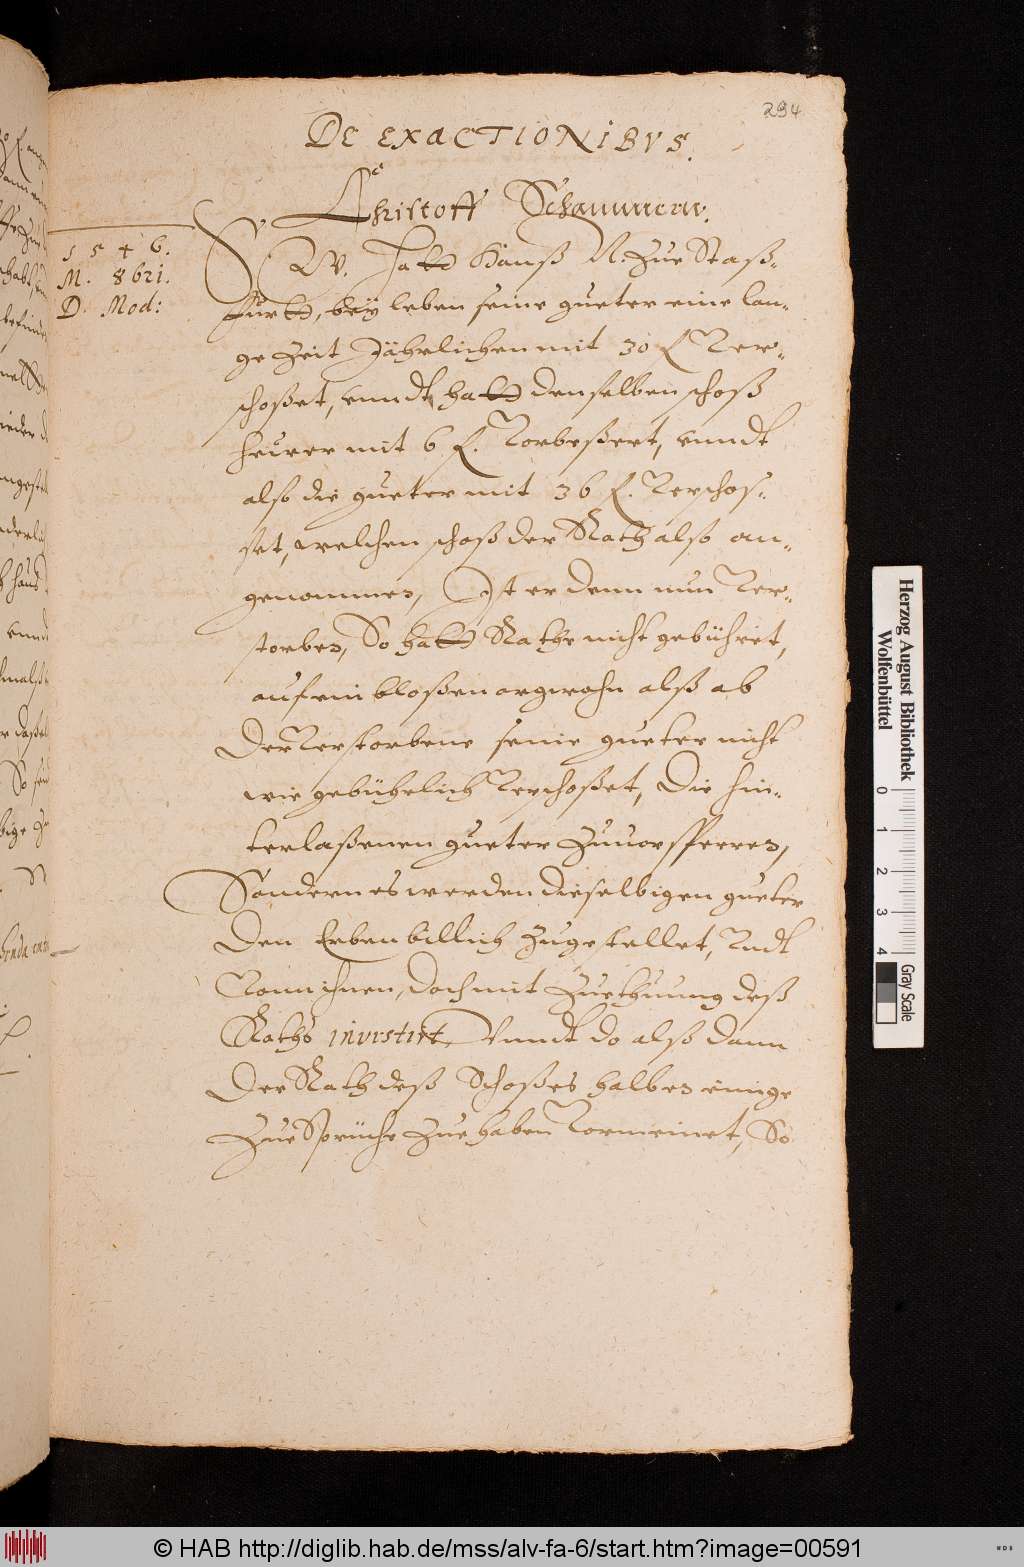 294
DE EXACTIONIBVS.
Christoff Schammerr.
1546.
M. 8bri.
D. Mod:
W. Hatt Hanß N. Zue Staß-
furtt, bey leben seine gueter eine lan-
ge Zeit Jährlichen mit 30 f Ver-
schoßet, vnndt hatt denselben schoß
heurer mit 6 f. Vorbeßert, vnndt
also die gueter mit 36 f. Verschos-
set, welchen schoß der Rath also an-
genommen, Ist er denn nun Ver-
storben, So hatt Rathe nicht gebühret,
auf ein bloßen argwohn alß ab
Der Verstorbene seine gueter nicht
wie gebührlich Verschoßet, Die hin-
terlaßenen gueter Zuuorsperren,
Sondern es werden dieselbigen gueter
Den Erben billich Zugestellet, Vndt
Vonn ihnen, doch mit Zuethuung deß
Raths investirt, Vnndt do alß dann
Der Rath deß Schoßes halben einige
Zue Sprüche Zue haben Vormeinet, So
Herzog August Bibliothek
Wolfenbüttel
0 1 2 3 4
Gray Scale
© HAB http://diglib.hab.de/mss/alv-fa-6/start.htm?image=00591